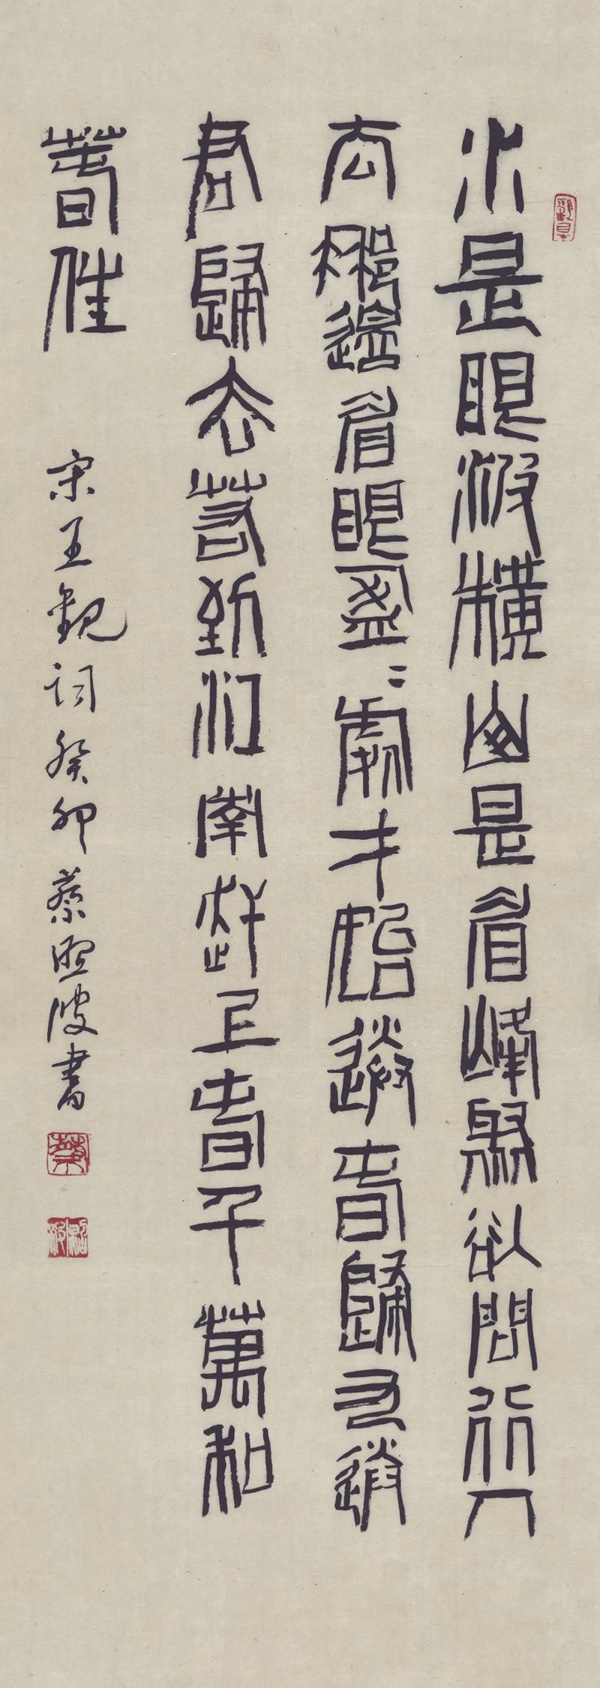 水是眼波橫山是眉峰聚欲問行人
去那邊眉眼盈〻處才始送春歸又送
君歸去若到江南赶上春千萬和
春住
宋王觀詞癸卯蔡照波書
蔡